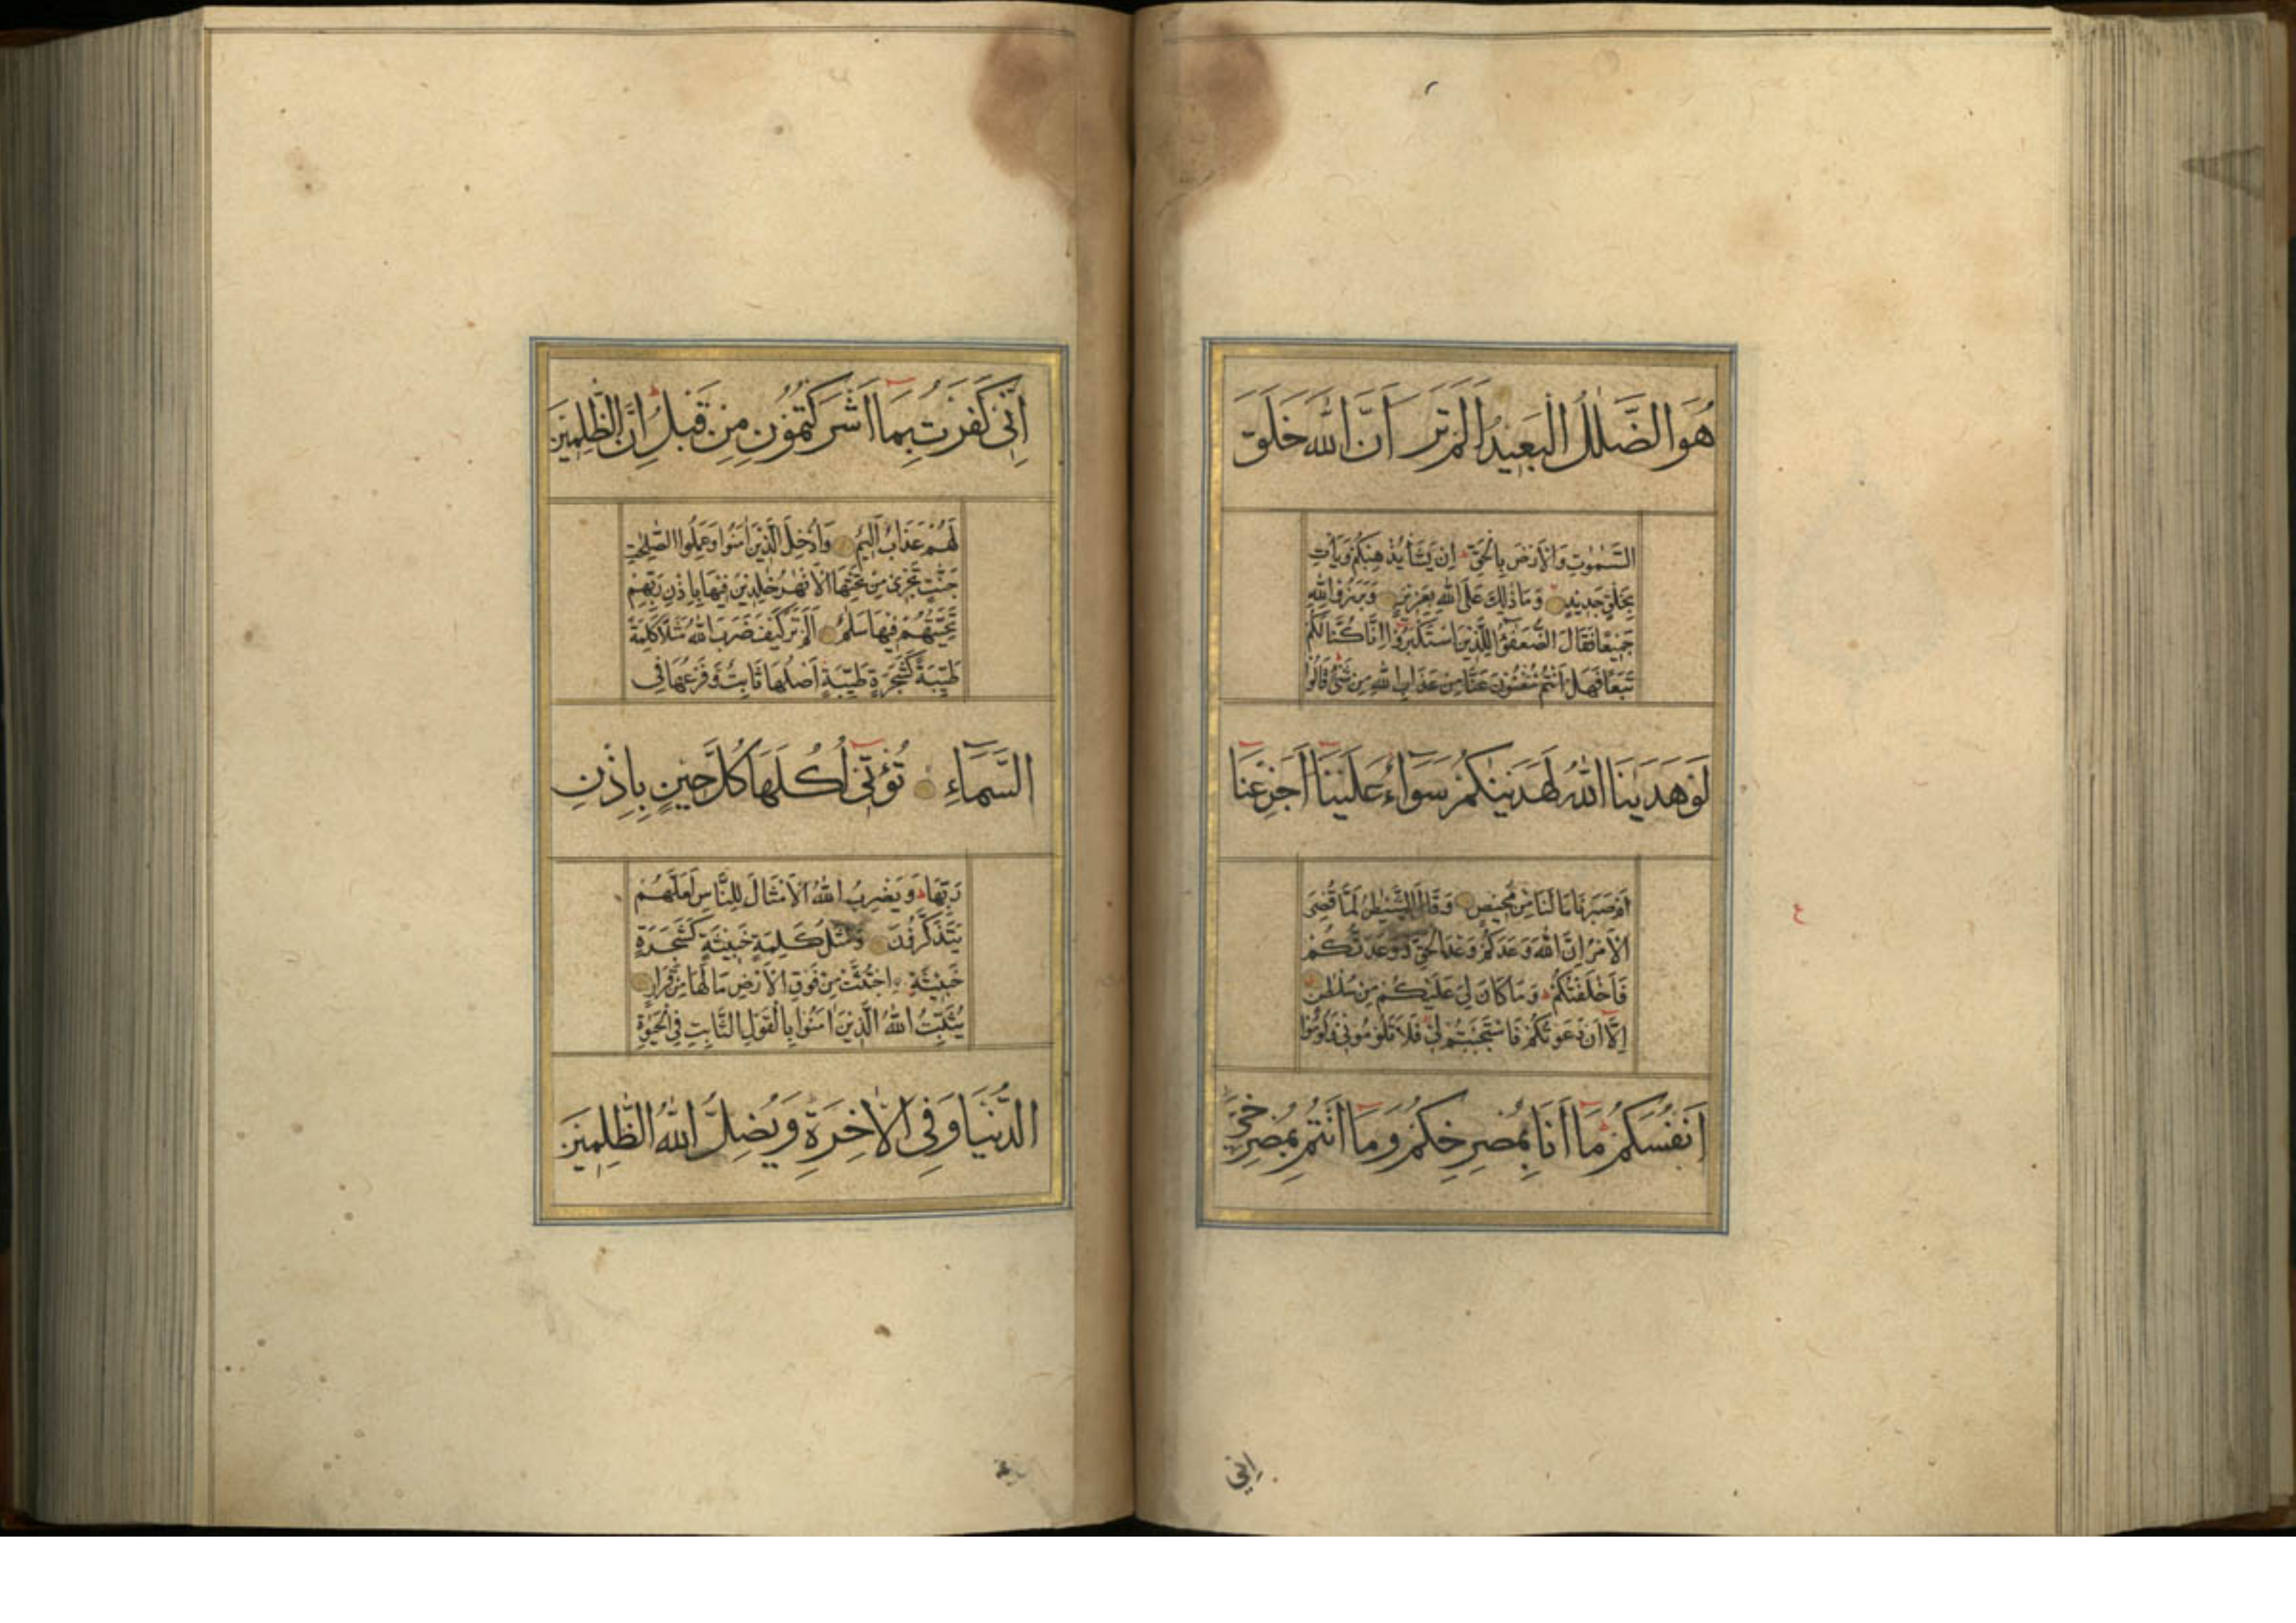 هُوَ الضَّلٰلُ الْبَعِيدُ اَلَمْ تَرَ اَنَّ اللّٰهَ خَلَقَ
السَّمٰوٰتِ وَالْاَرْضَ بِالْحَقِّ اِنْ يَشَأْ يُذْهِبْكُمْ وَيَأْتِ
بِخَلْقٍ جَدِيدٍ وَمَا ذٰلِكَ عَلَى اللّٰهِ بِعَزِيزٍ وَبَرَزُوا لِلّٰهِ
جَمِيعًا فَقَالَ الضُّعَفٰؤُا لِلَّذِينَ اسْتَكْبَرُوا اِنَّا كُنَّا لَكُمْ
تَبَعًا فَهَلْ اَنْتُمْ مُغْنُونَ عَنَّا مِنْ عَذَابِ اللّٰهِ مِنْ شَىْءٍ قَالُوا
لَوْ هَدٰينَا اللّٰهُ لَهَدَيْنٰكُمْ سَوَآءٌ عَلَيْنَا اَجَزِعْنَا
اَمْ صَبَرْنَا مَا لَنَا مِنْ مَحِيصٍ وَقَالَ الشَّيْطٰنُ لَمَّا قُضِىَ
الْاَمْرُ اِنَّ اللّٰهَ وَعَدَكُمْ وَعْدَ الْحَقِّ وَوَعَدْتُكُمْ
فَاَخْلَفْتُكُمْ وَمَا كَانَ لِىَ عَلَيْكُمْ مِنْ سُلْطٰنٍ
اِلَّا اَنْ دَعَوْتُكُمْ فَاسْتَجَبْتُمْ لِى فَلَا تَلُومُونِى وَلُومُوا
اَنْفُسَكُمْ مَا اَنَا بِمُصْرِخِكُمْ وَمَا اَنْتُمْ بِمُصْرِخِىَّ
اِنِّي
ع
اِنِّى كَفَرْتُ بِمَا اَشْرَكْتُمُونِ مِنْ قَبْلُ اِنَّ الظّٰلِمِينَ
لَهُمْ عَذَابٌ اَلِيمٌ وَاُدْخِلَ الَّذِينَ اٰمَنُوا وَعَمِلُوا الصّٰلِحٰتِ
جَنّٰتٍ تَجْرِى مِنْ تَحْتِهَا الْاَنْهٰرُ خٰلِدِينَ فِيهَا بِاِذْنِ رَبِّهِمْ
تَحِيَّتُهُمْ فِيهَا سَلٰمٌ اَلَمْ تَرَ كَيْفَ ضَرَبَ اللّٰهُ مَثَلًا كَلِمَةً
طَيِّبَةً كَشَجَرَةٍ طَيِّبَةٍ اَصْلُهَا ثَابِتٌ وَفَرْعُهَا فِى
السَّمَآءِ تُؤْتِى اُكُلَهَا كُلَّ حِينٍ بِاِذْنِ
رَبِّهَا وَيَضْرِبُ اللّٰهُ الْاَمْثَالَ لِلنَّاسِ لَعَلَّهُمْ
يَتَذَكَّرُونَ وَمَثَلُ كَلِمَةٍ خَبِيثَةٍ كَشَجَرَةٍ
خَبِيثَةٍ اجْتُثَّتْ مِنْ فَوْقِ الْاَرْضِ مَا لَهَا مِنْ قَرَارٍ
يُثَبِّتُ اللّٰهُ الَّذِينَ اٰمَنُوا بِالْقَوْلِ الثَّابِتِ فِى الْحَيٰوةِ
الدُّنْيَا وَفِى الْاٰخِرَةِ وَيُضِلُّ اللّٰهُ الظّٰلِمِينَ